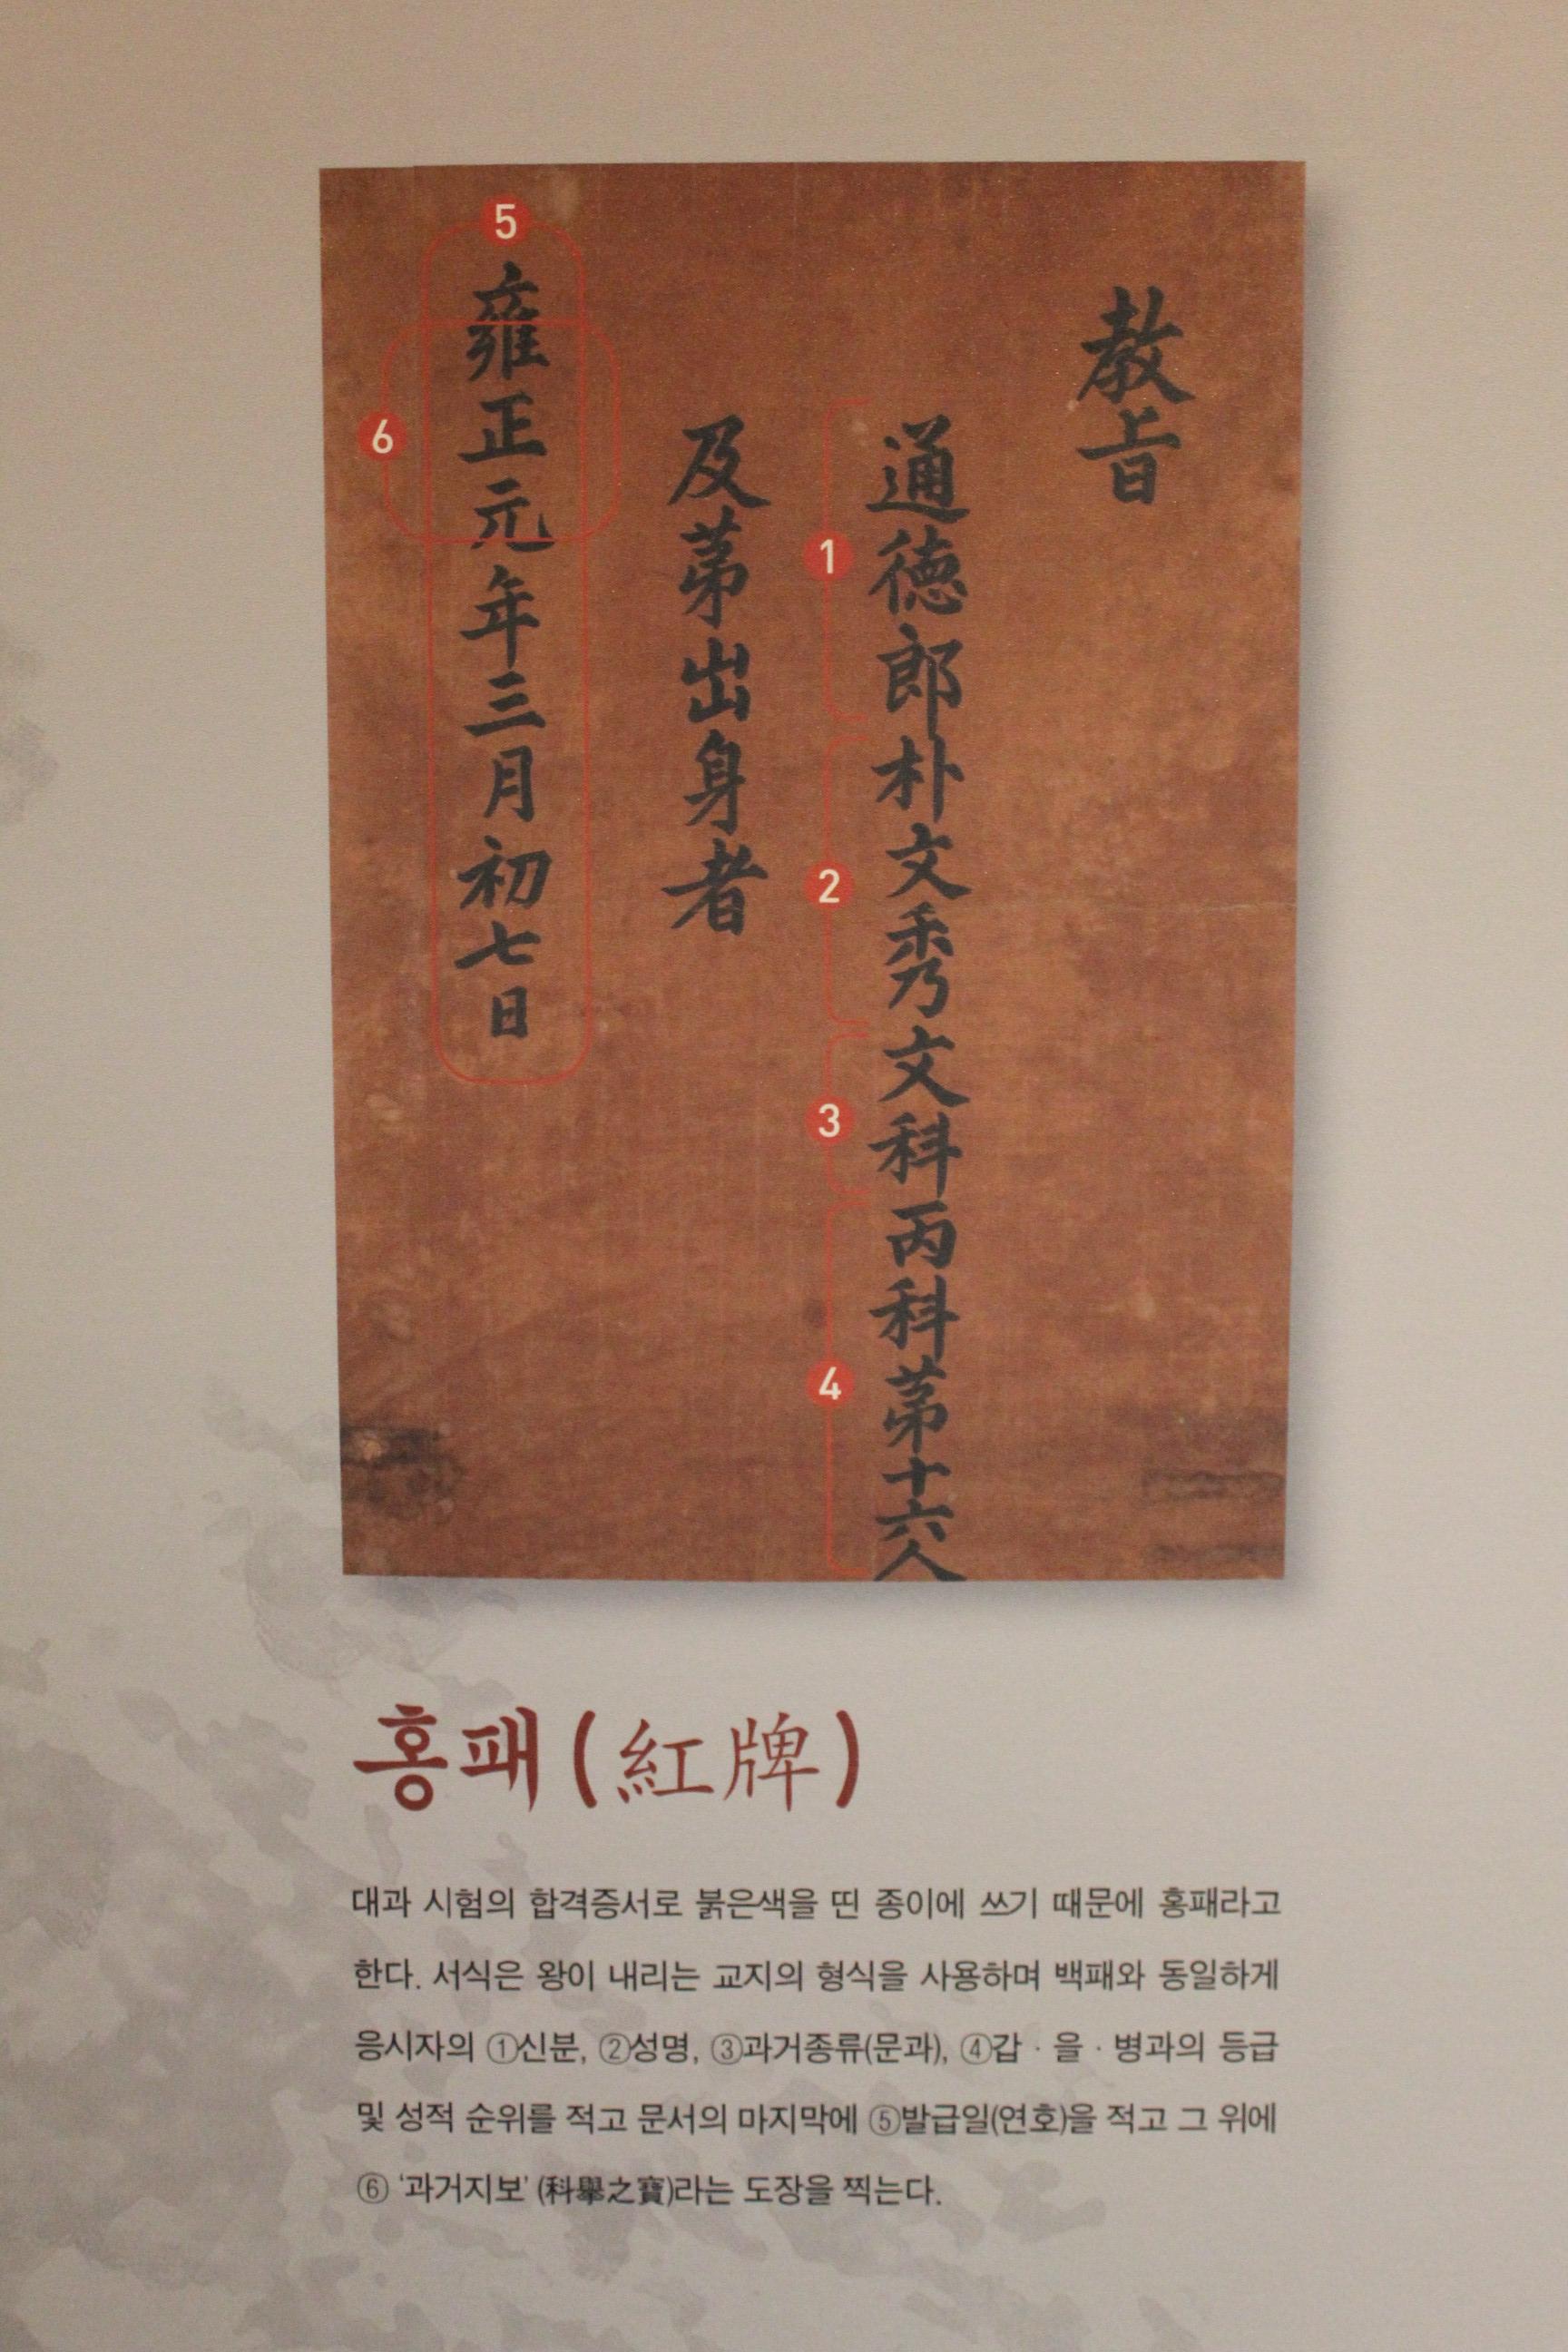 教旨
通德郎朴文秀文科丙科苐十六人
及苐出身者
雍正元年三月初七日
1
2
3
4
5
6
홍패(紅牌)
대과 시험의 합격증서로 붉은색을 띤 종이에 쓰기 때문에 홍패라고
한다. 서식은 왕이 내리는 교지의 형식을 사용하며 백패와 동일하게
응시자의 ①신분, ②성명, ③과거종류(문과), ④갑 · 을 · 병과의 등급
및 성적 순위를 적고 문서의 마지막에 ⑤발급일(연호)을 적고 그 위에
⑥ ‘과거지보’ (科擧之寶)라는 도장을 찍는다.